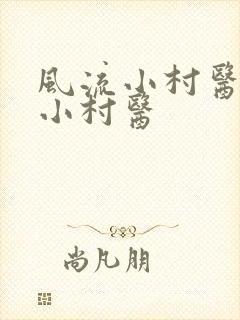 風流小村醫
小村醫
尚凡朋